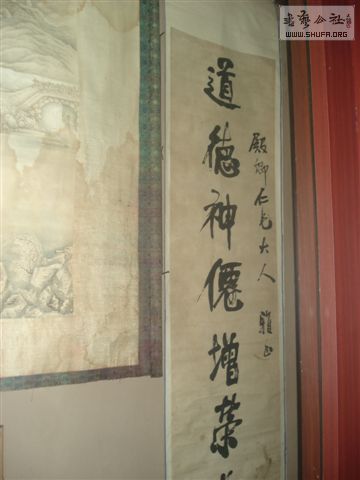 書藝公社
WWW.SHUFA.ORG
殿卿仁兄大人 雅正
道德神僊增榮